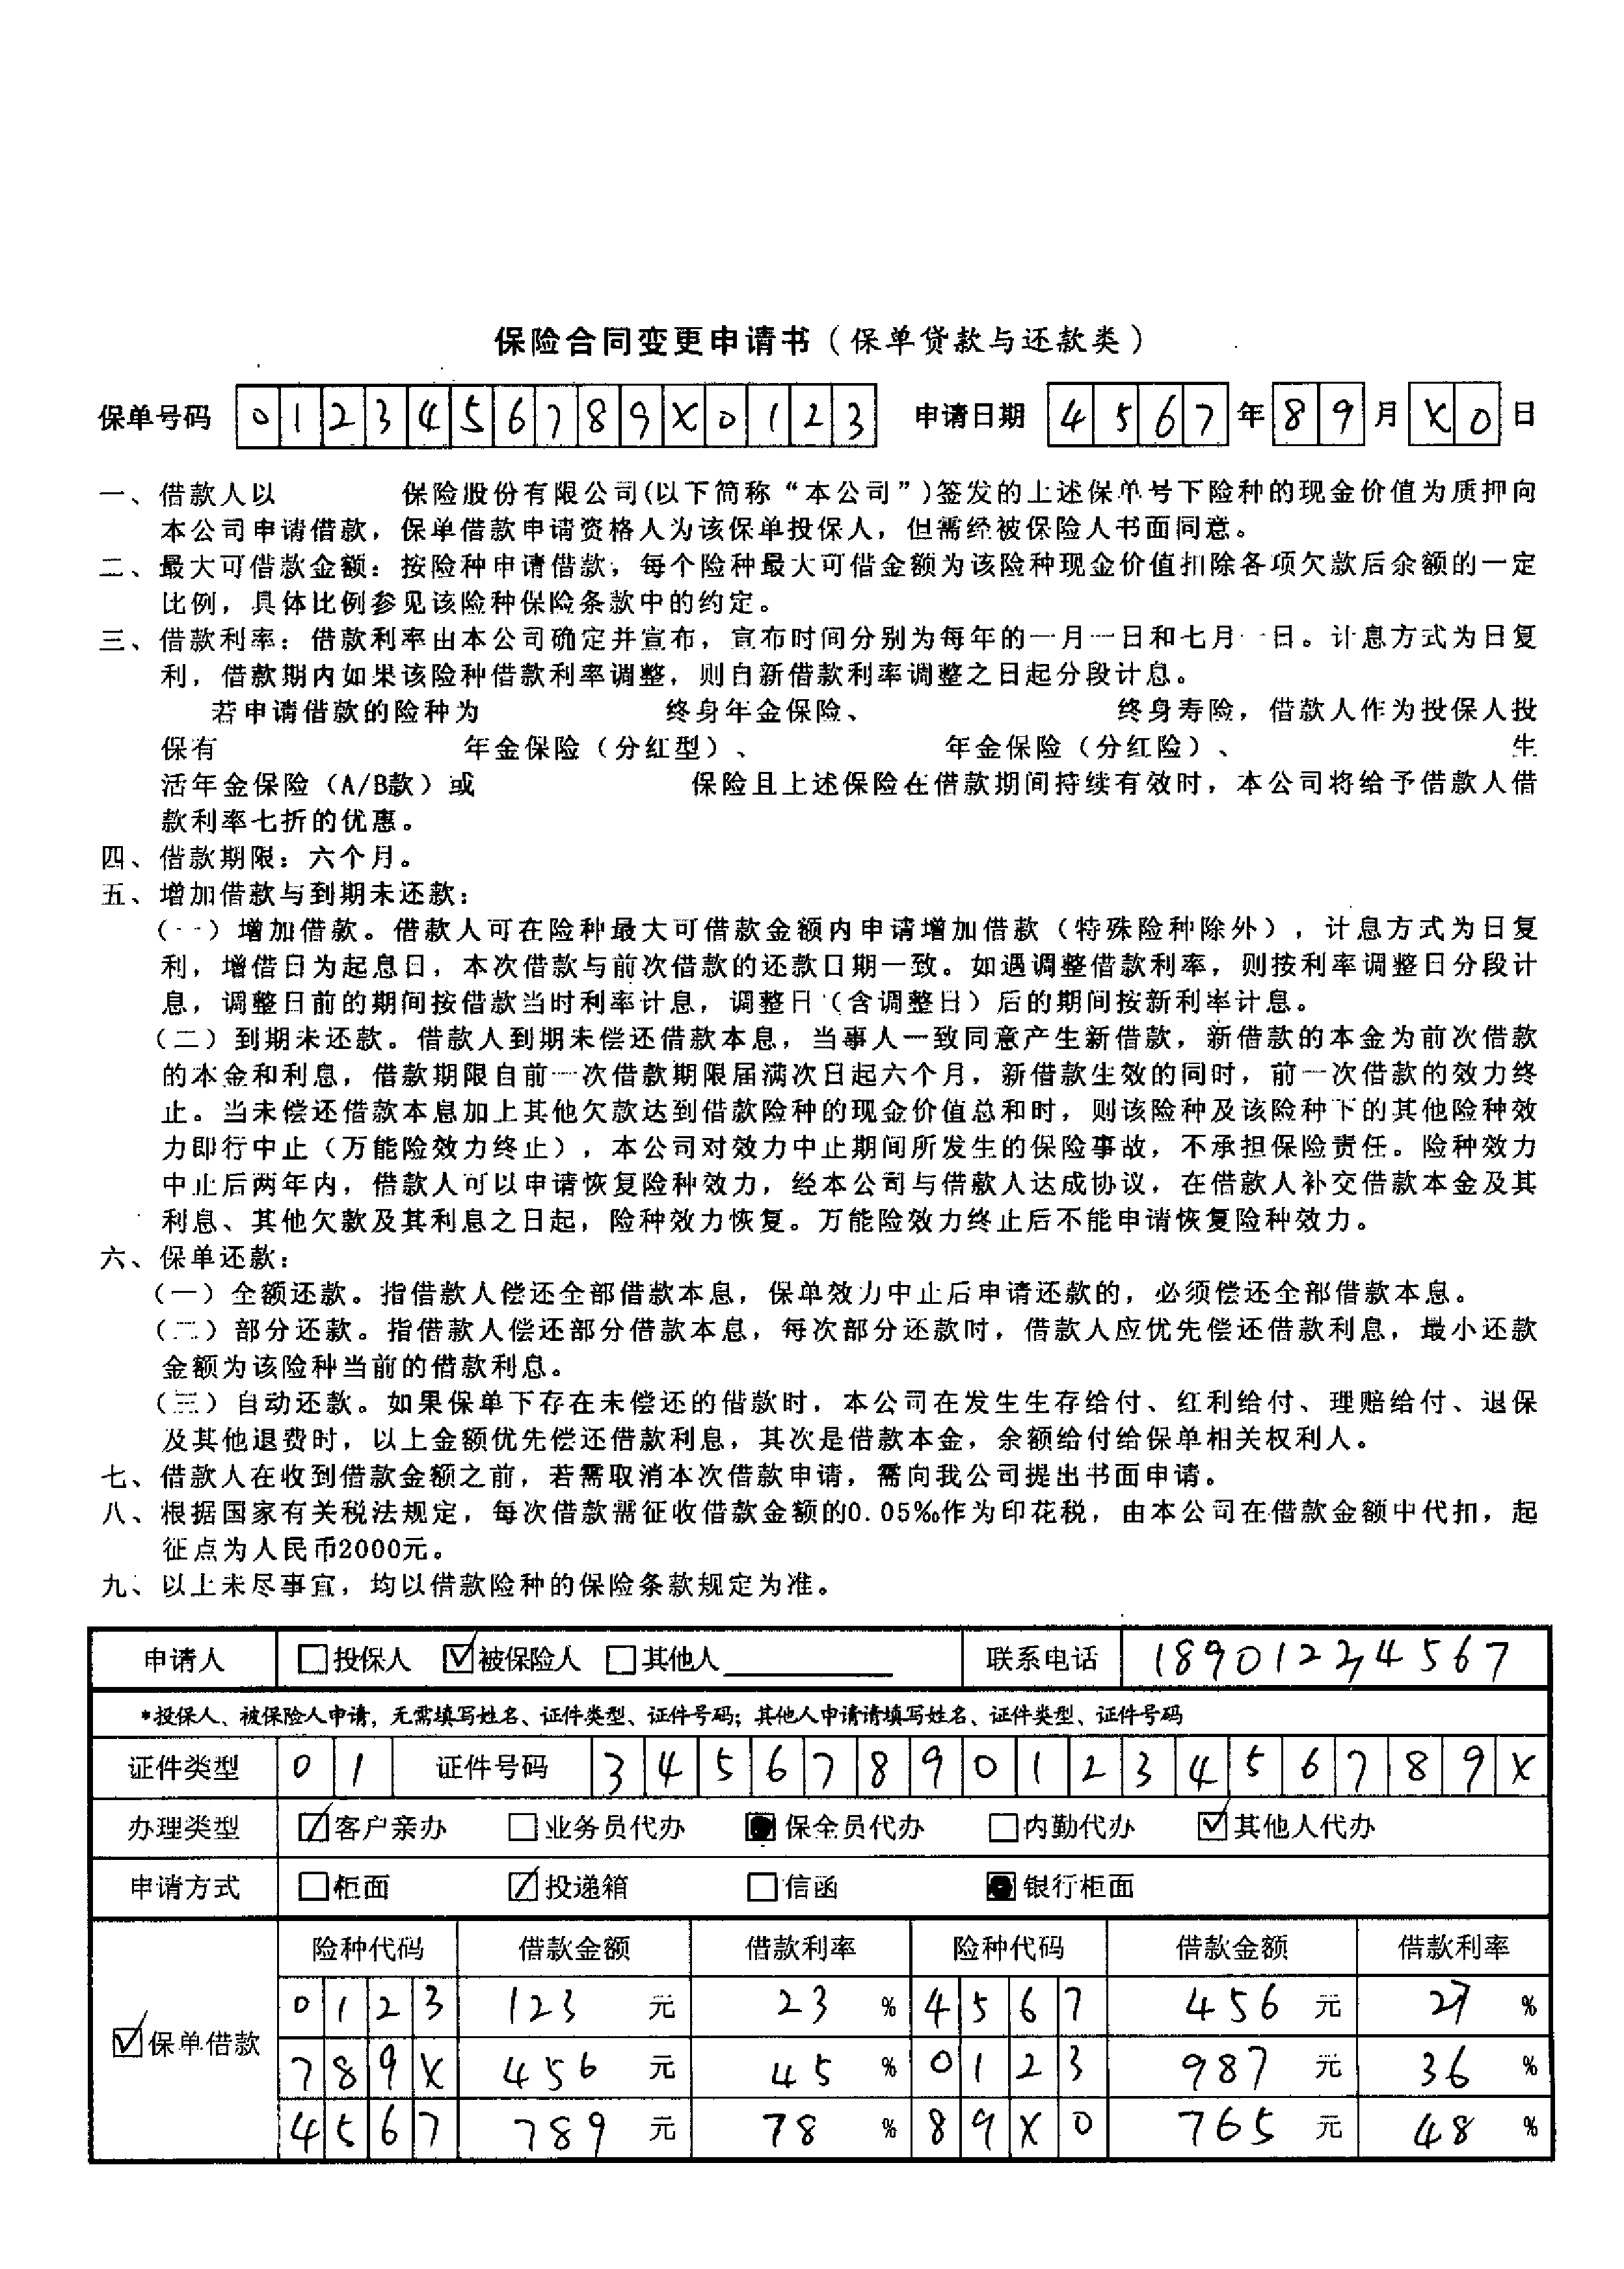 保险合同变更申请书（保单贷款与还款类）
保单号码 0 1 2 3 4 5 6 7 8 9 X 0 1 2 3 申请日期 4 5 6 7 年 8 9 月 X 0 日
一、借款人以 保险股份有限公司(以下简称“本公司”)签发的上述保单号下险种的现金价值为质押向
本公司申请借款，保单借款申请资格人为该保单投保人，但需经被保险人书面同意。
二、最大可借款金额：按险种申请借款，每个险种最大可借金额为该险种现金价值扣除各项欠款后余额的一定
比例，具体比例参见该险种保险条款中的约定。
三、借款利率：借款利率由本公司确定并宣布，宣布时间分别为每年的一月一日和七月一日。计息方式为日复
利，借款期内如果该险种借款利率调整，则自新借款利率调整之日起分段计息。
若申请借款的险种为 终身年金保险、 终身寿险，借款人作为投保人投
保有 年金保险（分红型）、 年金保险（分红险）、 生
活年金保险（A/B款）或 保险且上述保险在借款期间持续有效时，本公司将给予借款人借
款利率七折的优惠。
四、借款期限：六个月。
五、增加借款与到期未还款：
（一）增加借款。借款人可在险种最大可借款金额内申请增加借款（特殊险种除外），计息方式为日复
利，增借日为起息日，本次借款与前次借款的还款日期一致。如遇调整借款利率，则按利率调整日分段计
息，调整日前的期间按借款当时利率计息，调整日（含调整日）后的期间按新利率计息。
（二）到期未还款。借款人到期未偿还借款本息，当事人一致同意产生新借款，新借款的本金为前次借款
的本金和利息，借款期限自前一次借款期限届满次日起六个月，新借款生效的同时，前一次借款的效力终
止。当未偿还借款本息加上其他欠款达到借款险种的现金价值总和时，则该险种及该险种下的其他险种效
力即行中止（万能险效力终止），本公司对效力中止期间所发生的保险事故，不承担保险责任。险种效力
中止后两年内，借款人可以申请恢复险种效力，经本公司与借款人达成协议，在借款人补交借款本金及其
利息、其他欠款及其利息之日起，险种效力恢复。万能险效力终止后不能申请恢复险种效力。
六、保单还款：
（一）全额还款。指借款人偿还全部借款本息，保单效力中止后申请还款的，必须偿还全部借款本息。
（二）部分还款。指借款人偿还部分借款本息，每次部分还款时，借款人应优先偿还借款利息，最小还款
金额为该险种当前的借款利息。
（三）自动还款。如果保单下存在未偿还的借款时，本公司在发生生存给付、红利给付、理赔给付、退保
及其他退费时，以上金额优先偿还借款利息，其次是借款本金，余额给付给保单相关权利人。
七、借款人在收到借款金额之前，若需取消本次借款申请，需向我公司提出书面申请。
八、根据国家有关税法规定，每次借款需征收借款金额的0.05‰作为印花税，由本公司在借款金额中代扣，起
征点为人民币2000元。
九、以上未尽事宜，均以借款险种的保险条款规定为准。
申请人 投保人 被保险人 其他人 联系电话
*投保人、被保险人申请，无需填写姓名、证件类型、证件号码；其他人申请请填写姓名、证件类型、证件号码
证件类型 0 1 证件号码 3 4 5 6 7 8 9 0 1 2 3 4 5 6 7 8 9 X
办理类型 客户亲办 业务员代办 保全员代办 内勤代办 其他人代办
申请方式 柜面 投递箱 信函 银行柜面
险种代码 借款金额 借款利率 险种代码 借款金额 借款利率
0 1 2 3 123 元 23 % 4 5 6 7 456 元 %
保单借款
7 8 9 X 456 元 45 % 0 1 2 3 987 元 36 %
4 5 6 7 789 元 78 % 8 9 X 0 765 元 48 %